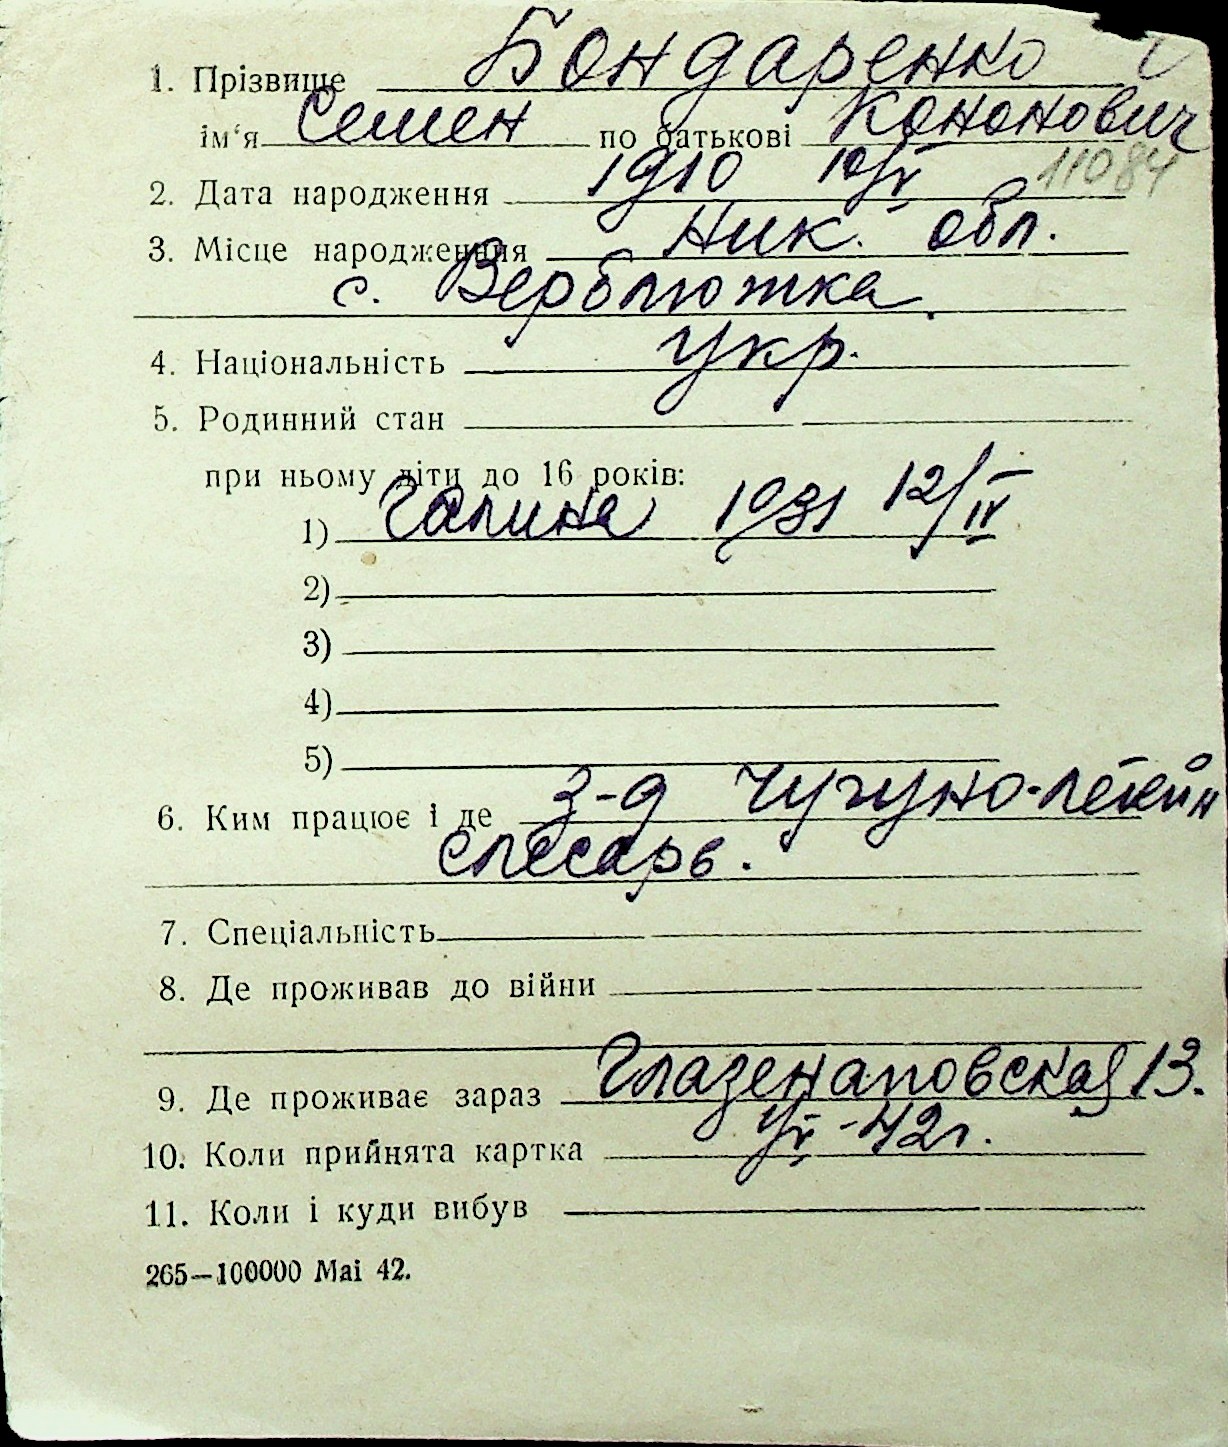 1. Прізвище Бондаренко
ім'я Семен по батькові Кононович
2. Дата народження 1910 10/V 11084
3. Місце народження Ник. обл.
с. Верблюжка.
4. Національність Укр.
5. Родинний стан
при ньому діти до 16 років:
1) Галина 1931 12/IV
2)
3)
4)
5)
6. Ким працює і де з-д Чугуно-
слесарь.
7. Спеціальність
8. Де проживав до війни
9. Де проживає зараз Глазенаповская 13.
10. Коли прийнята картка -42 г.
11. Коли і куди вибув
265—100000 Mai 42.